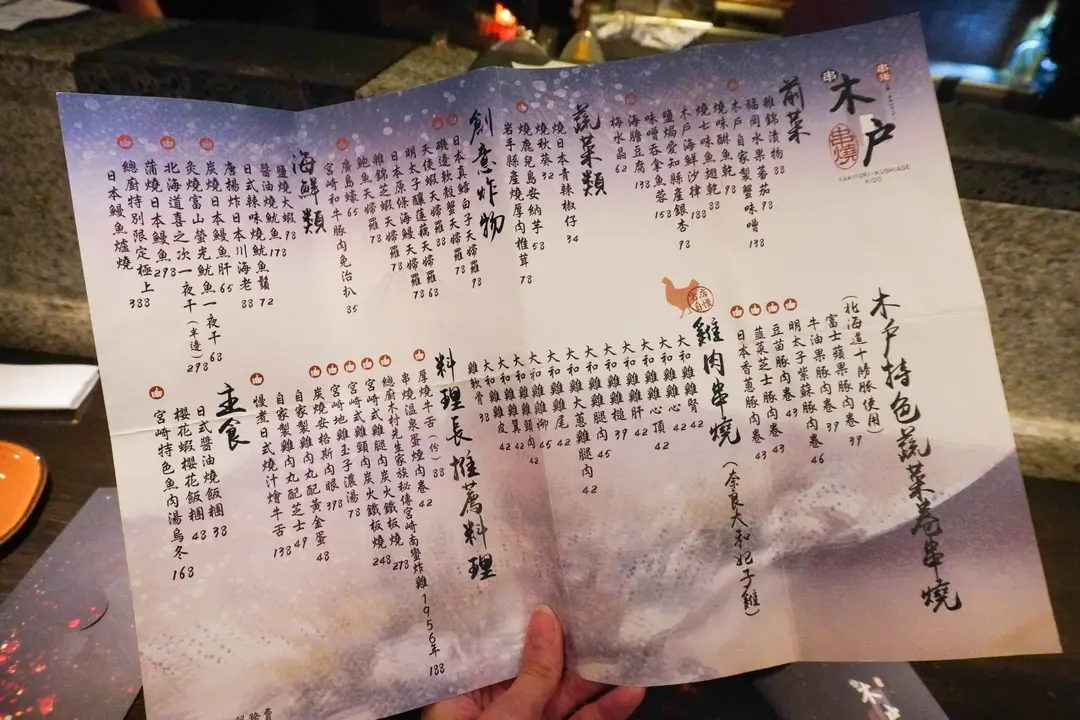 木戸
串燒
YAKITORI・KUSHIAGE
KIDO
前菜
雜錦漬物 88
福岡水果蕃茄 98
木戶自家製蟹味噌 138
燒味醂魚乾 98
燒七味魚翅乾 88
木戶海鮮沙律 188
鹽焗愛知縣產銀杏 98
味噌吞拿魚蓉 158
海膽豆腐 138
梅水晶 62
蔬菜類
燒日本青辣椒仔 34
燒秋葵 32
燒鹿兒島安納芋 58
岩手縣產燒厚肉椎茸 78
創意炸物
日本真鱈白子天婦羅 98
磯邊軟殼蟹天婦羅 78
天使蝦天婦羅 88
明太子釀蓮藕天婦羅 68
日本原條海鰻天婦羅 78
雜錦芝蝦天婦羅 78
鮑魚天婦羅 78
廣島蠔 65
宮崎和牛豚肉免治扒 85
海鮮類
鹽燒大蝦 98
醬油燒魷魚 178
日式辣味燒魷魚鬚 72
唐揚炸日本川海老 88
炭燒日本鰻魚肝 65
炙燒富山螢光魷魚一夜干 68
北海道喜之次一夜干(半邊) 298
蒲燒日本鰻魚 298
總廚特別限定極上
日本鰻魚爐燒 388
木戶特色蔬菜卷串燒
(北海道十勝豚使用)
富士蘋果豚肉卷 39
牛油果豚肉卷 39
明太子紫蘇豚肉卷 46
豆苗豚肉卷 43
韮菜芝士豚肉卷 43
日本香蔥豚肉卷 43
雞肉串燒
(奈良大和妃子雞)
大和雞腎 42
大和雞心 42
大和雞心頂 42
大和雞肝 42
大和雞槌 39
大和雞腿肉 45
大和雞大蔥雞腿肉 42
大和雞尾 42
大和雞柳 45
大和雞頸肉 42
大和雞翼 42
大和雞皮 42
雞軟骨 38
料理長推薦料理
厚燒牛舌(份) 88
串燒溫泉蛋燶肉卷 42
總廚木村先生家族秘傳宮崎南蠻炸雞1956年 188
宮崎式雞腿肉炭火鐵板燒 278
宮崎式雞頸肉炭火鐵板燒 248
宮崎地雞玉子濃湯 78
炭燒安格斯肉眼 398
自家製雞肉丸配黃金蛋 48
自家製雞肉丸配芝士 49
慢煮日式燒汁燴牛舌 138
主食
日式醬油燒飯糰 38
櫻花蝦櫻花飯糰 48
宮崎特色魚肉湯烏冬 168